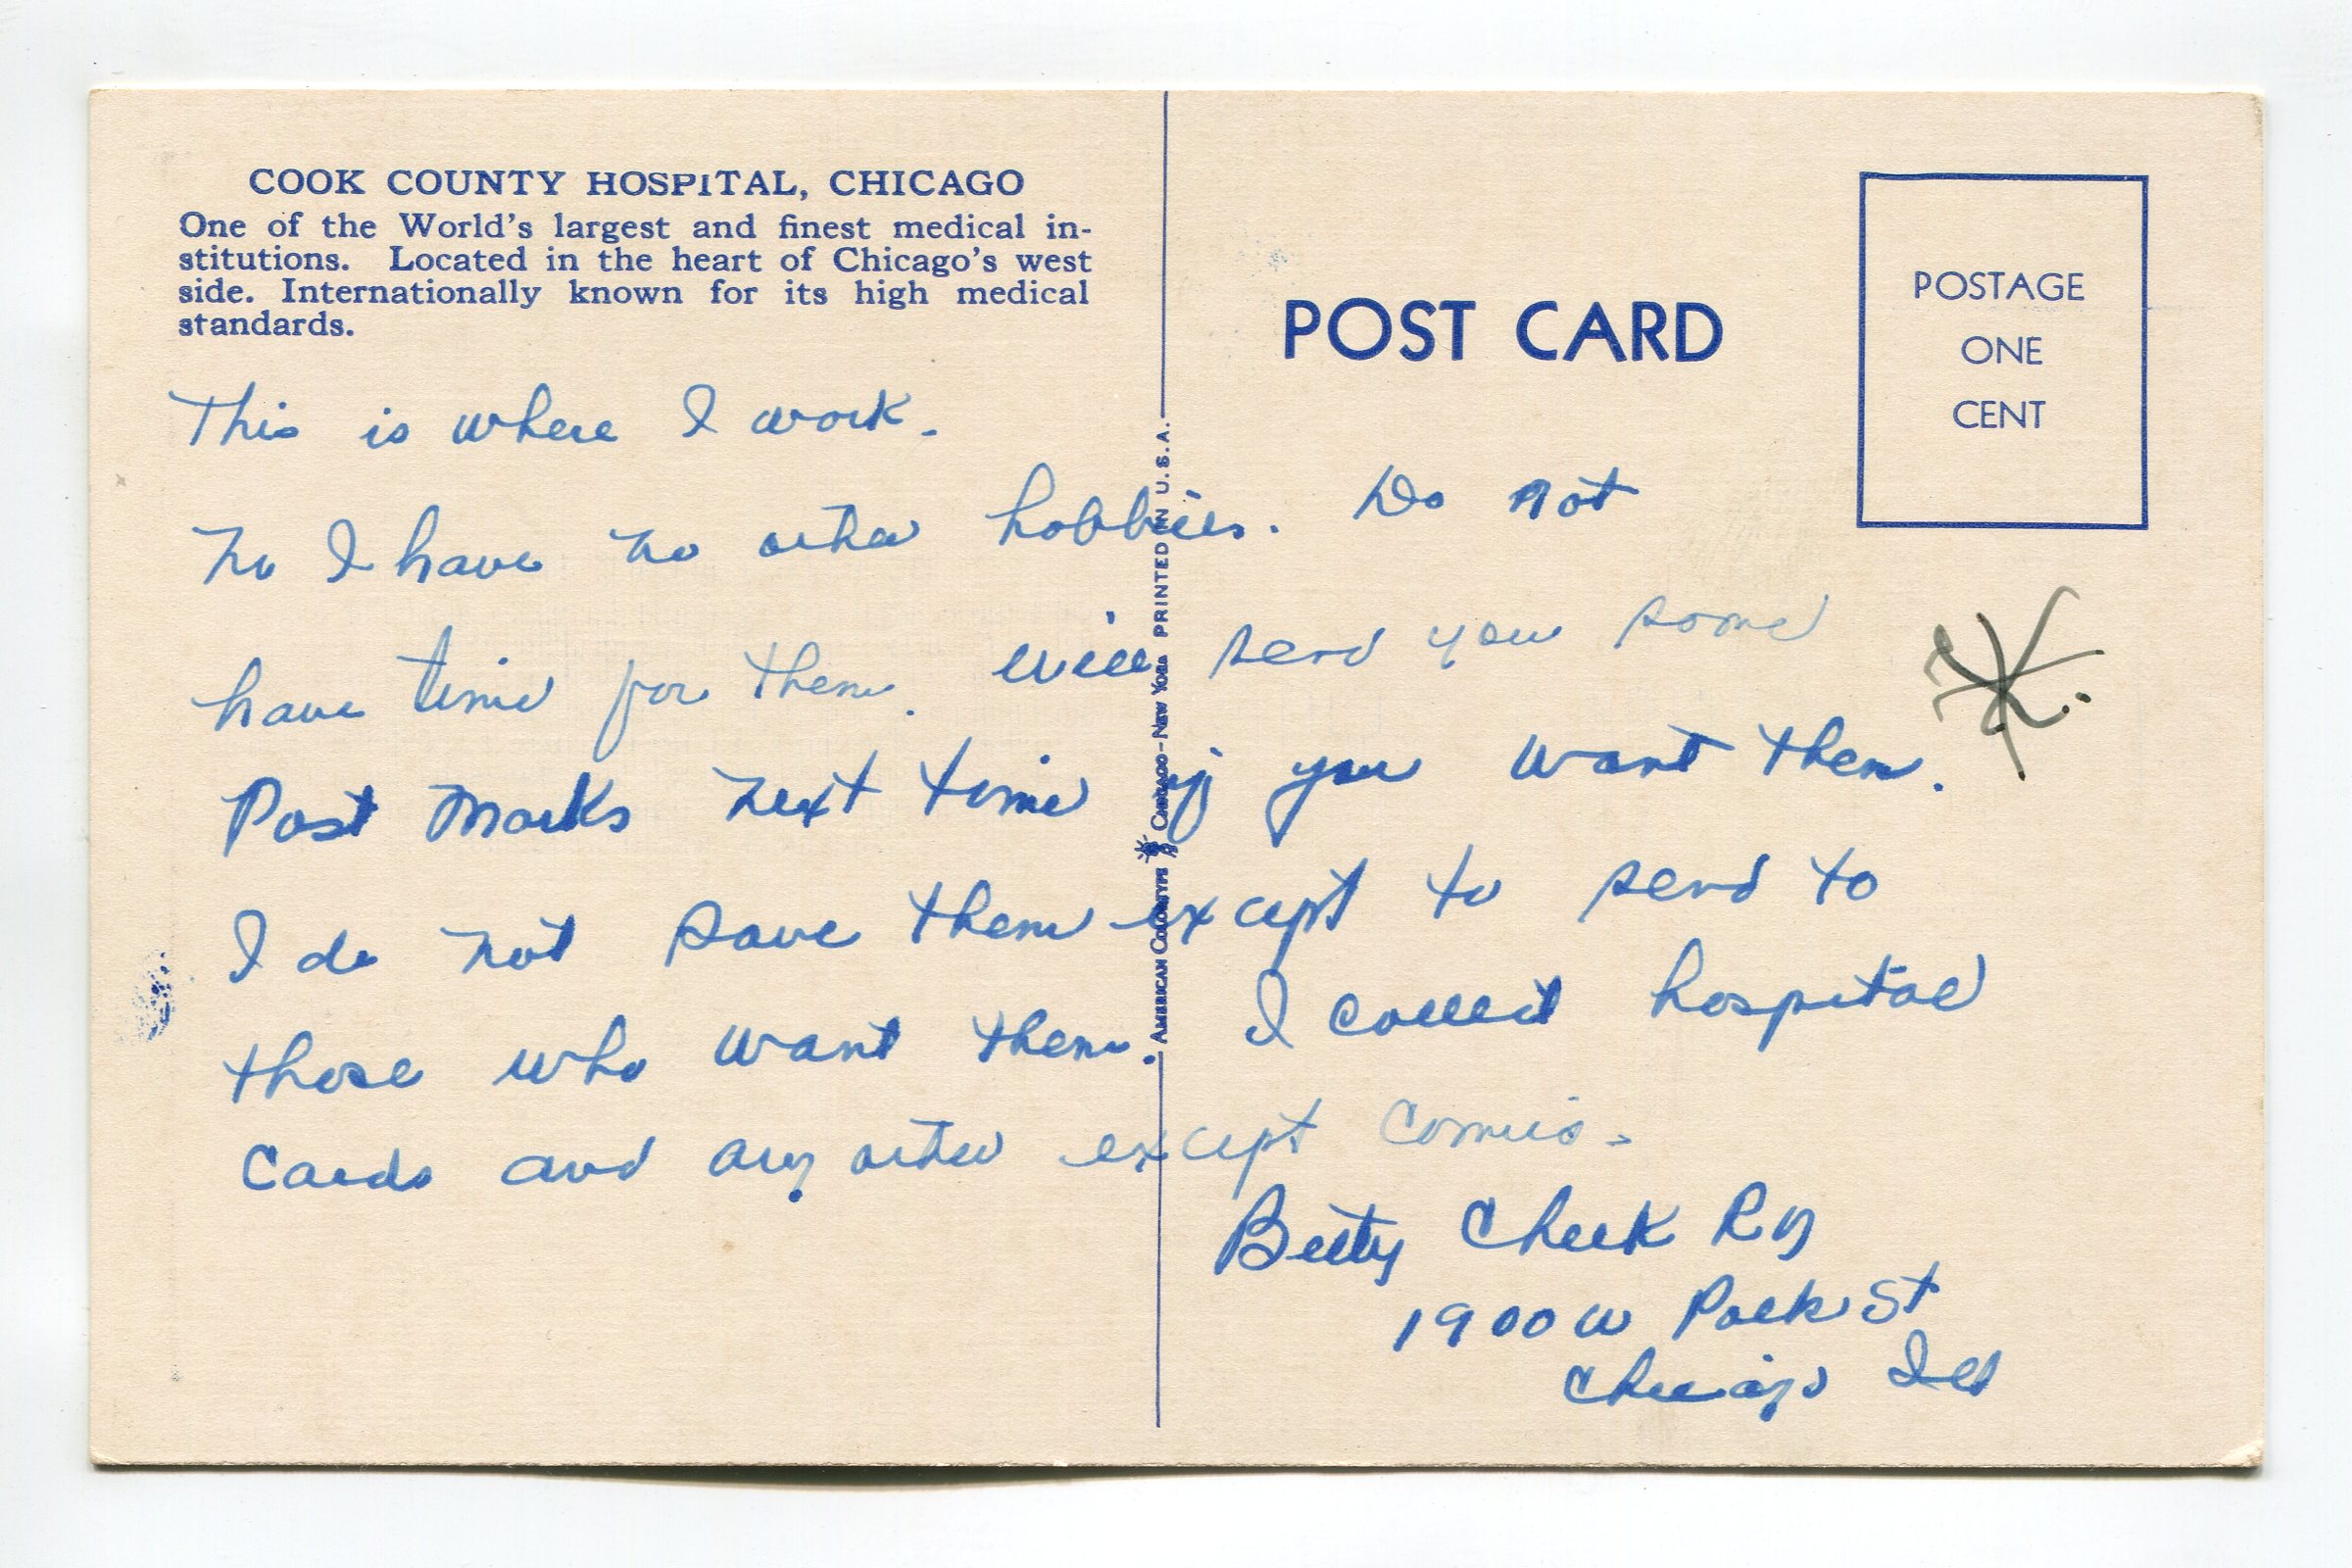 COOK COUNTY HOSPITAL, CHICAGO
One of the World's largest and finest medical in-
stitutions. Located in the heart of Chicago's west
side. Internationally known for its high medical
standards.
POST CARD
POSTAGE
ONE
CENT
This is where I work.
No I have no other hobbies. Do not
have time for them. Will send you some
Post Marks next time if you want them.
I do not save them except to send to
those who want them. I collect hospital
Cards and any other except Comics.
Betty Cheek RN
1900 W Polk St
Chicago Ill
AMERICAN COLORTYPE CHICAGO-NEW YORK PRINTED IN U.S.A.